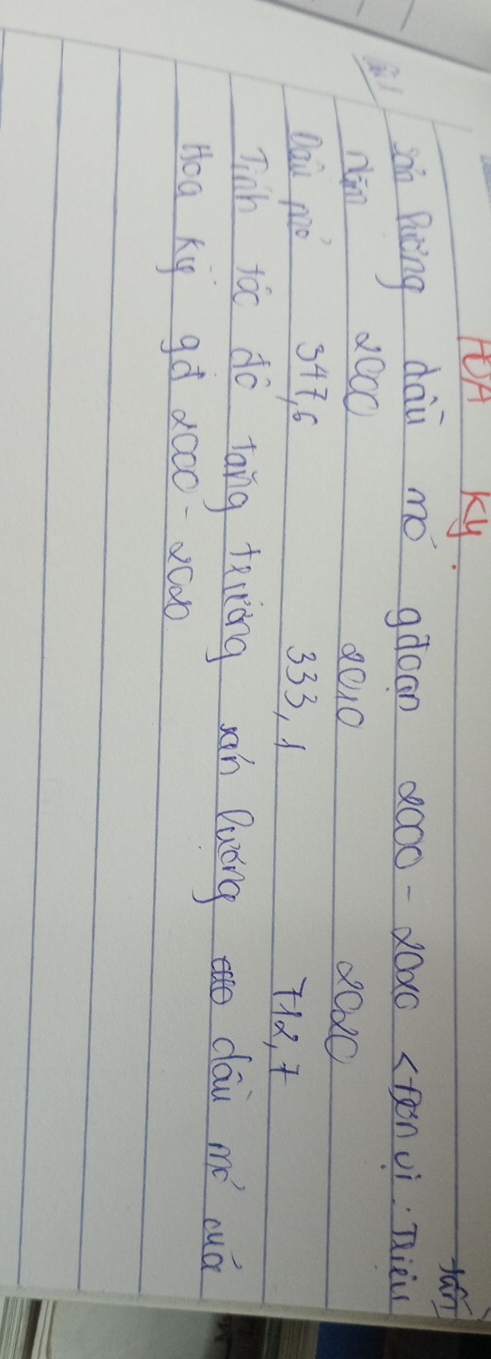 HOA KỲ
Câu 1
Sản lượng dầu mỏ gđoạn 2000 - 2020 <đơn vị: Triệu tấn
Năm 2000 2010 2020
Dầu mỏ 347,6 333,1 712,7
Tính tốc độ tăng trưởng sản lượng dầu mỏ của
Hoa Kỳ gđ 2000 - 2020